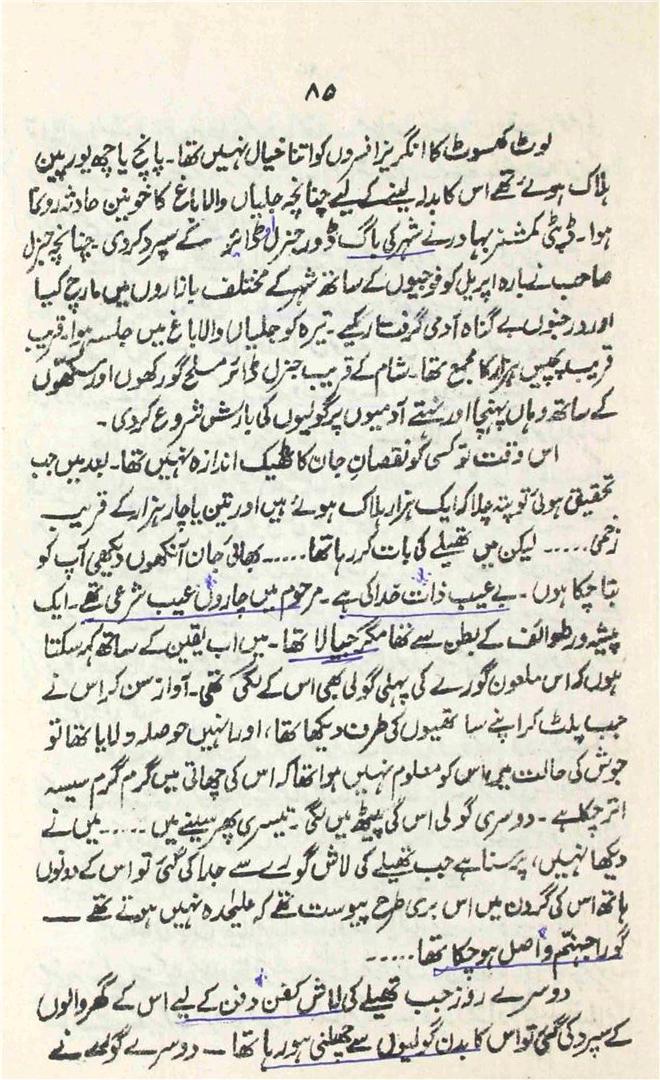 ۸۵
لوٹ کھسوٹ کا انگریز افسروں کو اتنا خیال نہیں تھا۔ پانچ یا چھ یورپین
ہلاک ہوئے تھے اس کا بدلہ لینے کے لیے چنانچہ جلیاں والا باغ کا خونین حادثہ رونما
ہوا۔ ڈپٹی کمشنر بہادر نے شہر کی باگ ڈور جنرل ڈائر کے سپرد کردی۔ چنانچہ جنرل
صاحب نے بارہ اپریل کو فوجیوں کے ساتھ شہر کے مختلف بازاروں میں مارچ کیا
اور درجنوں بے گناہ آدمی گرفتار کیے۔ تیرہ کو جلیاں والا باغ میں جلسہ ہوا۔ قریب
قریب پچیس ہزار کا مجمع تھا۔ شام کے قریب جنرل ڈائر مسلح گورکھوں اور سکھوں
کے ساتھ وہاں پہنچا اور نہتے آدمیوں پر گولیوں کی بارش شروع کردی۔
اس وقت تو کسی کو نقصانِ جان کا ٹھیک اندازہ نہیں تھا۔ بعد میں جب
تحقیق ہوئی تو پتہ چلا کہ ایک ہزار ہلاک ہوئے ہیں اور تین یا چار ہزار کے قریب
زخمی ..... لیکن میں تھیلے کی بات کر رہا تھا ..... بھائی جان آنکھوں دیکھی آپ کو
بتا چکا ہوں۔ بے عیب ذات خدا کی ہے۔ مرحوم میں چاروں عیب شرعی تھے۔ ایک
پیشہ ور طوائف کے بطن سے تھا مگر جیالا تھا۔ میں اب یقین کے ساتھ کہہ سکتا
ہوں کہ اس ملعون گورے کی پہلی گولی بھی اس کے لگی تھی۔ آواز سن کر اس نے
جب پلٹ کر اپنے ساتھیوں کی طرف دیکھا تھا، اور انہیں حوصلہ دلایا تھا تو
جوش کی حالت میں اس کو معلوم نہیں ہوا تھا کہ اس کی چھاتی میں گرم گرم سیسہ
اتر چکا ہے۔ دوسری گولی اس کی پیٹھ میں لگی۔ تیسری پھر سینے میں ..... میں نے
دیکھا نہیں، پر سنا ہے جب تھیلے کی لاش گورے سے جدا کی گئی تو اس کے دونوں
ہاتھ اس کی گردن میں اس بری طرح پیوست تھے کہ علیحدہ نہیں ہوتے تھے —
گورا جہنّم واصل ہو چکا تھا .....
دوسرے روز جب تھیلے کی لاش کفن دفن کے لیے اس کے گھر والوں
کے سپرد کی گئی تو اس کا بدن گولیوں سے چھلنی ہو رہا تھا — دوسرے گورے نے